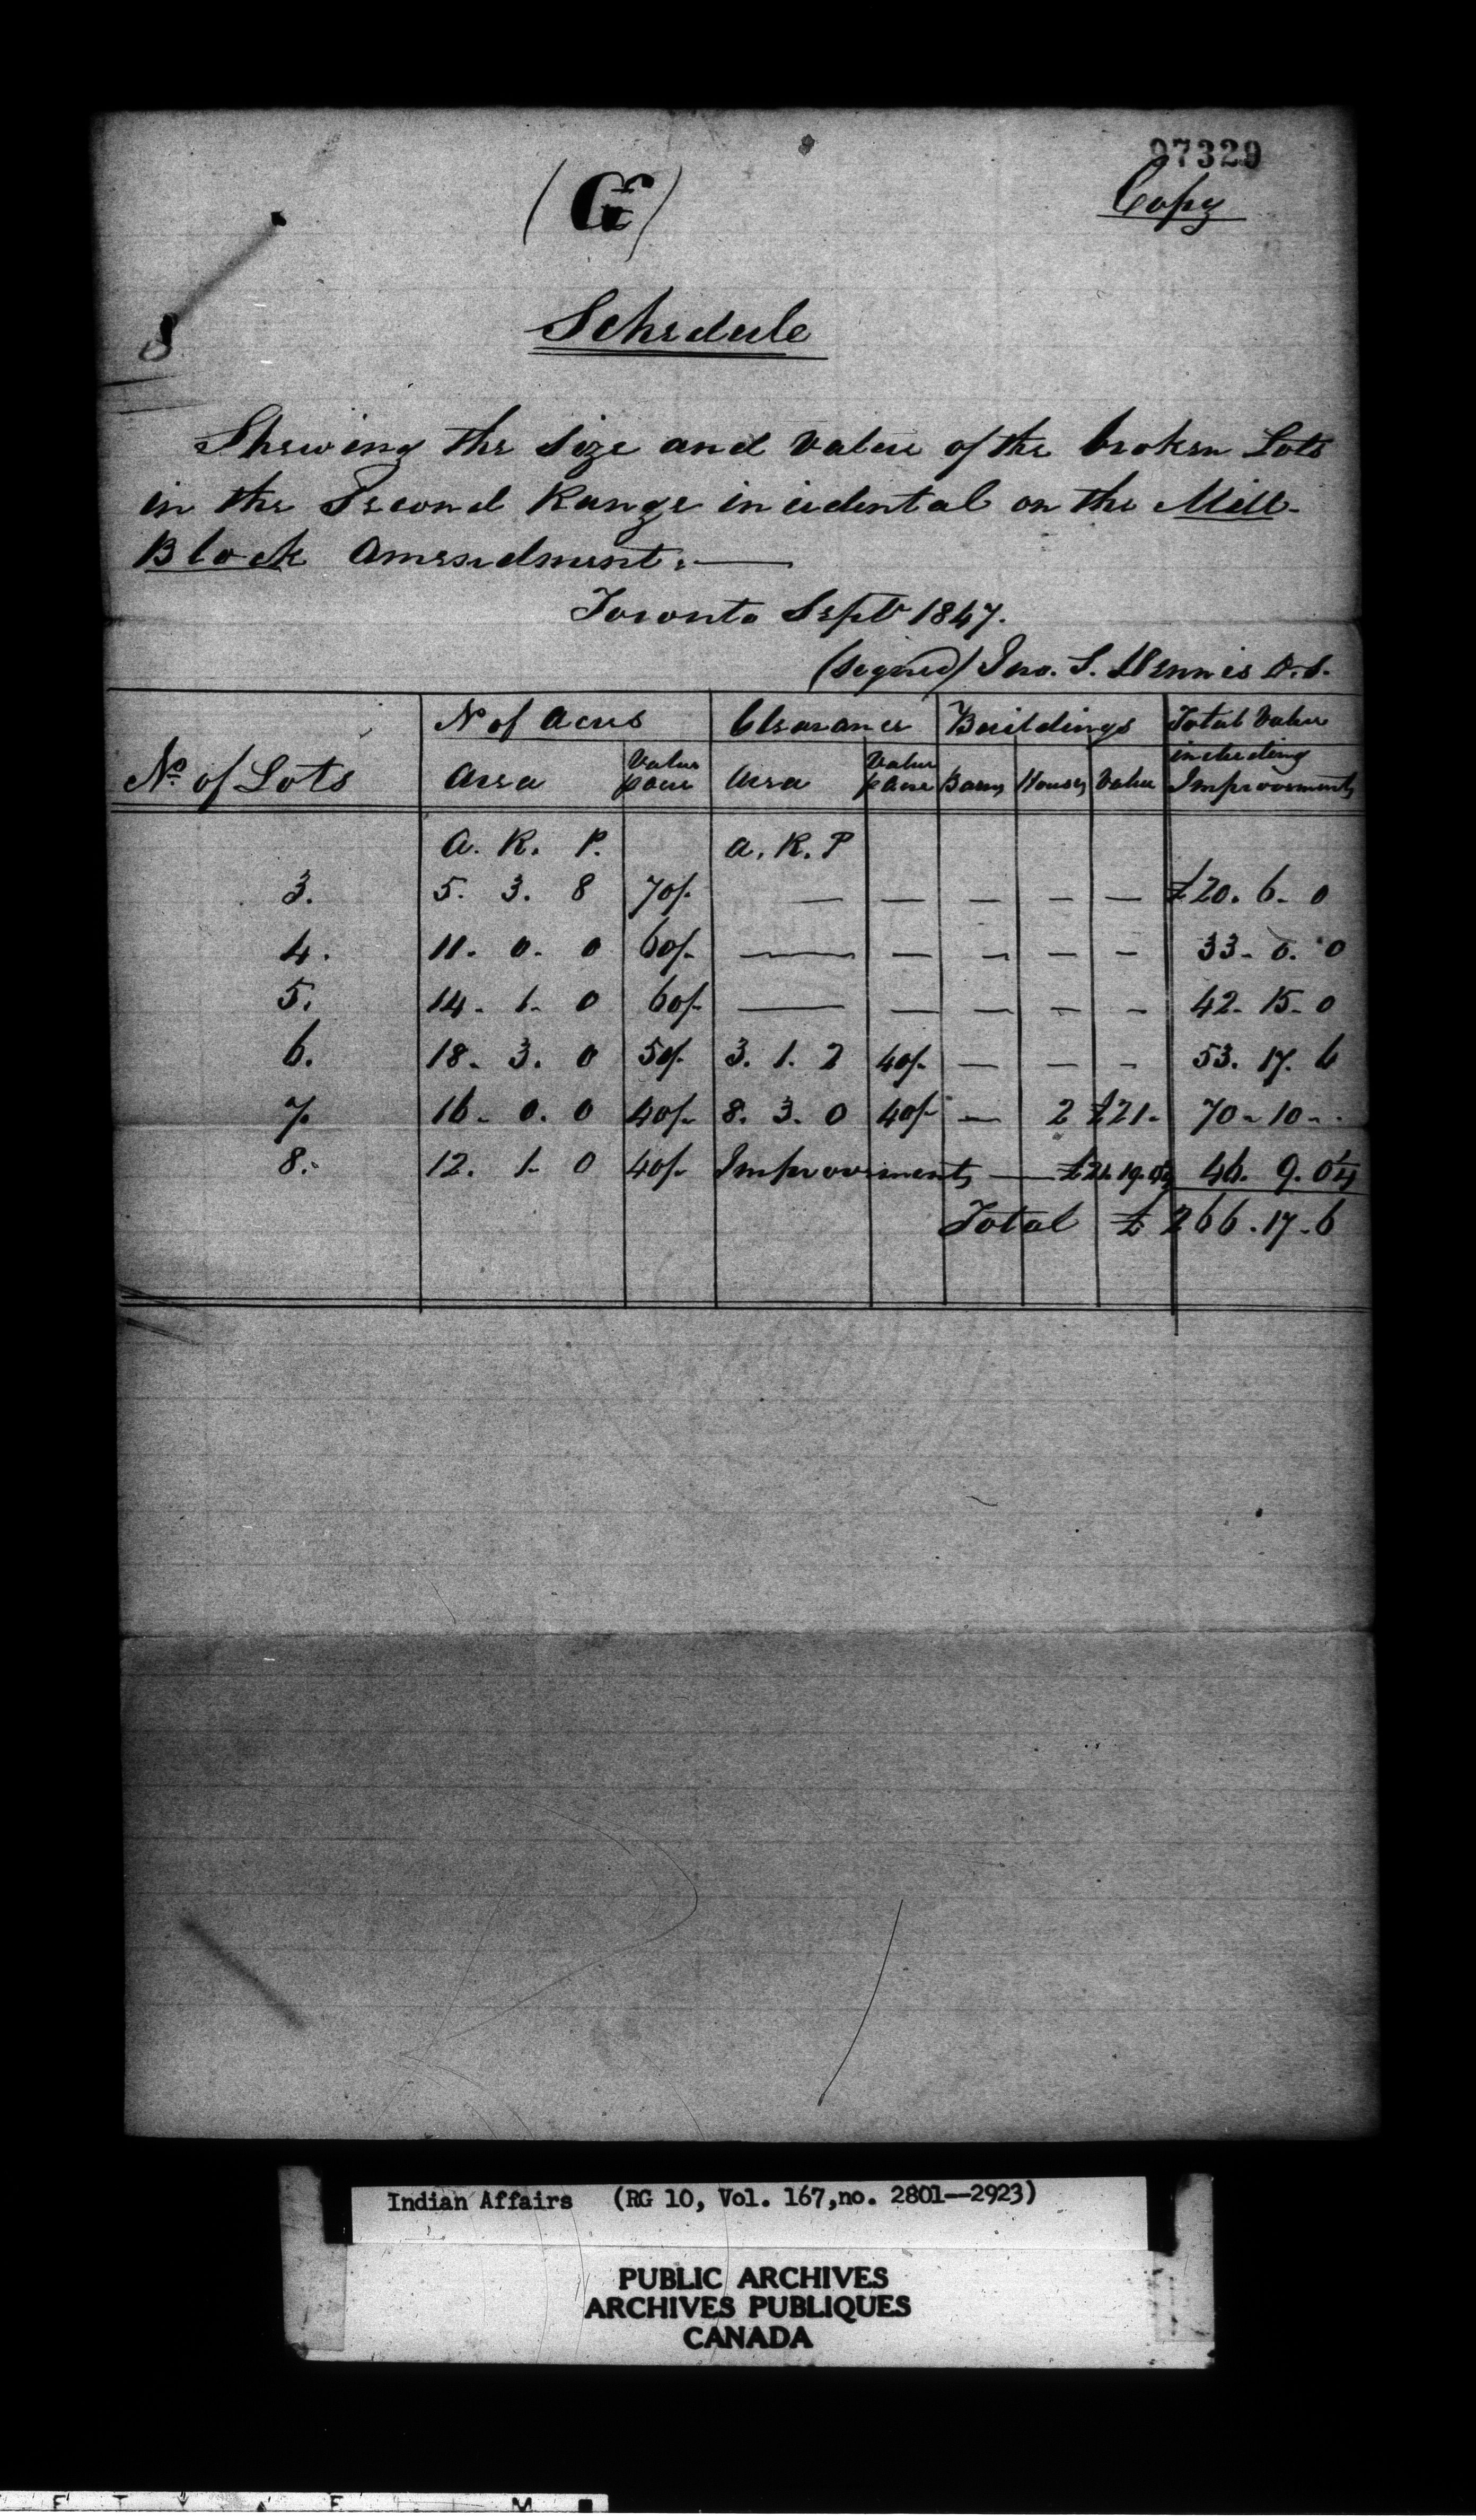 97329
(G)
Copy
8
Schedule
Shewing the Size and Value of the broken Lots
in the Second Range incidental on the Mill-
Block Amendment.
Toronto Sept 1847.
(Signed) Jno. S. Dennis D.S.
No of Acres Clearance Buildings Total Value
No. of Lots Area Value p acre Area Value p acre Barns Houses Value including Improvements
A. R. P. A. R. P
3. 5. 3. 8 70/- — — — — — £20. 6. 0
4. 11. 0. 0 60/- — — — — — 33. 0. 0
5. 14. 1. 0 60/- — — — — — 42. 15. 0
6. 18. 3. 0 50/- 3. 1. 2 40/- — — — 53. 17. 6
7. 16. 0. 0 40/- 8. 3. 0 40/- — 2 £21. 70. 10. .
8. 12. 1. 0 40/- Improvements — 46. 9.
Total £ 266. 17. 6
Indian Affairs (RG 10, Vol. 167,no. 2801--2923)
PUBLIC ARCHIVES
ARCHIVES PUBLIQUES
CANADA